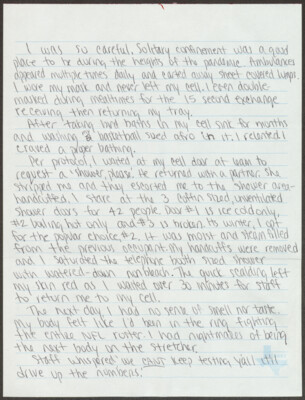 I was so careful. Solitary confinement was a good
place to be during the heights of the pandemic. Ambulances
appeared multiple times daily and carted away sheet covered lumps.
I wore my mask and never left my cell. I even double-
masked during mealtimes for the 15 second exchange
receiving then returning my tray.
After taking bird baths in my cell sink for months
and washing a basketball sized afro in it, I relented. I
craved a proper bathing.
Per protocol, I waited at my cell door at 6am to
request a "shower, please." He returned with a partner. She
stripped me and they escorted me to the shower area-
handcuffed. I stare at the 3 coffin sized, unventilated
shower doors for 42 people. Door #1 is ice cold only,
#2 boiling hot only and #3 is broken. It's winter, I opt
for the popular choice #2. It was moist and steam filled
from the previous occupant. My handcuffs were removed
and I saturated the telephone booth sized shower
with watered-down nonbleach. The quick scalding left
my skin red as I waited over 30 minutes for staff
to return me to my cell.
The next day I had no sense of smell nor taste.
My body felt like I'd been in the ring fighting
the entire NFL roster. I had nightmares of being
the next body on the stretcher.
Staff whispered we can't keep testing y'all it'll
drive up the numbers.